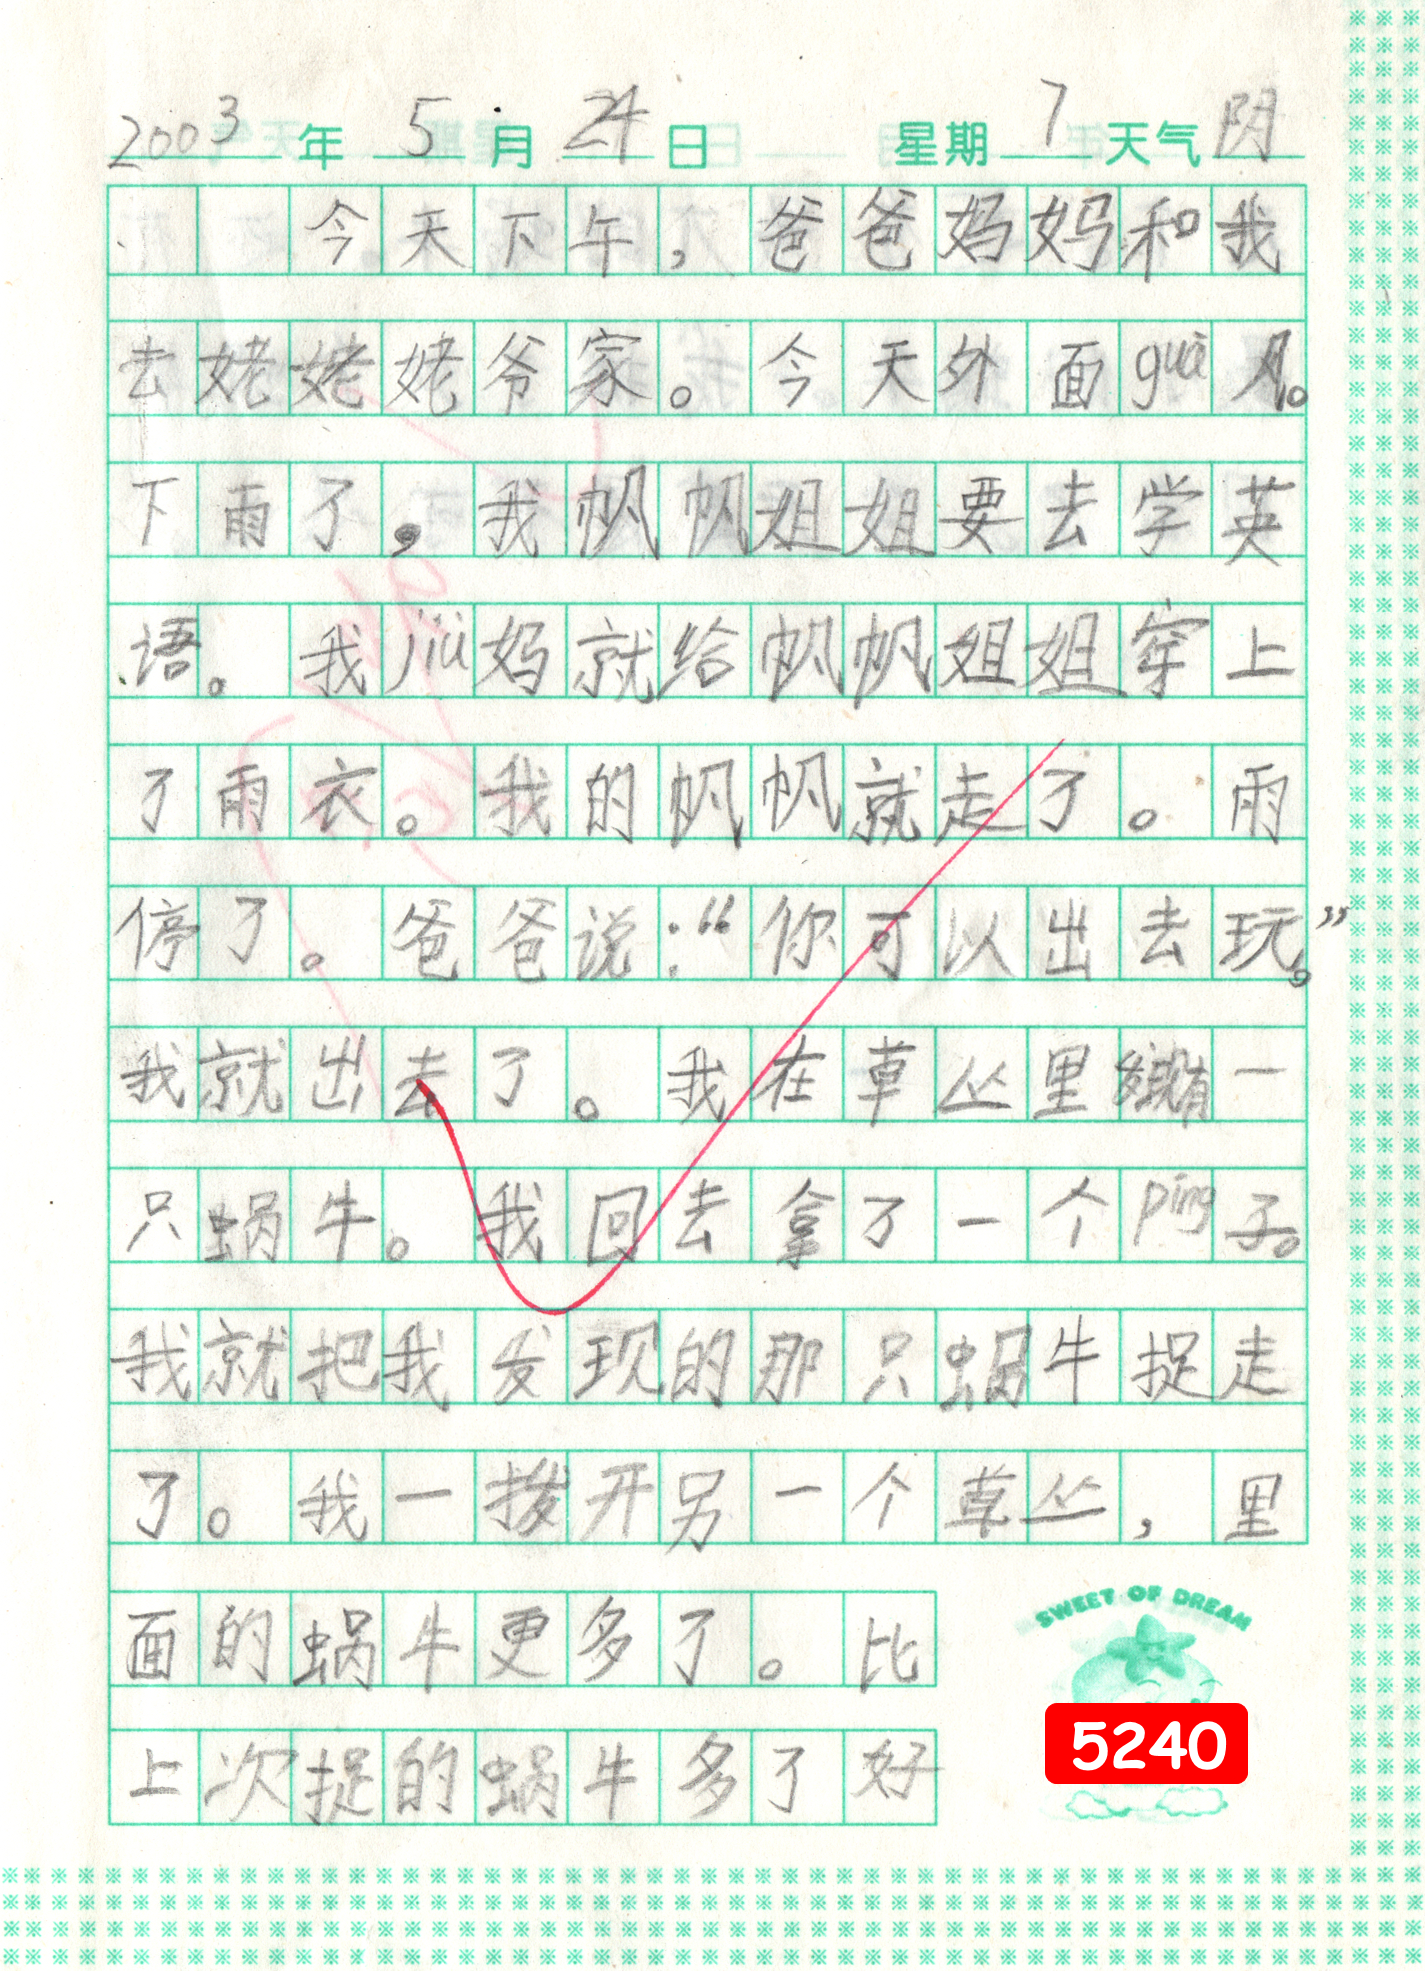 2003年 5月 24日 星期 7 天气 阴
今天下午，爸爸妈妈和我
去姥姥姥爷家。今天外面guā风。
下雨了，我帆帆姐姐要去学英
语。我jiù妈就给帆帆姐姐穿上
了雨衣。我的帆帆就走了。雨
停了。爸爸说：“你可以出去玩。”
我就出去了。我在草丛里发现有一
只蜗牛。我回去拿了一个píng子。
我就把我发现的那只蜗牛捉走
了。我一拨开另一个草丛，里
面的蜗牛更多了。比
上次捉的蜗牛多了好
SWEET OF DREAM
5240